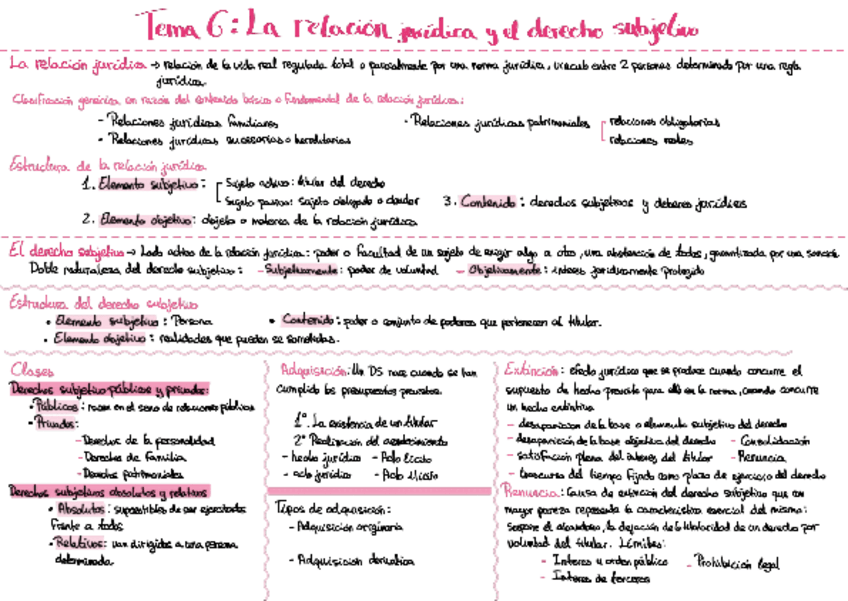 Tema 6: La relación jurídica y el derecho subjetivo
La relación jurídica → relación de la vida real regulada total o parcialmente por una norma jurídica, vínculo entre 2 personas determinado por una regla
jurídica.
Clasificación genérica en razón del contenido básico o fundamental de la relación jurídica:
- Relaciones jurídicas familiares
- Relaciones jurídicas patrimoniales
relaciones obligatorias
relaciones reales
- Relaciones jurídicas sucesorias o hereditarias
Estructura de la relación jurídica
1. Elemento subjetivo:
Sujeto activo: titular del derecho
Sujeto pasivo: sujeto obligado o deudor
2. Elemento objetivo: objeto o materia de la relación jurídica
3. Contenido: derechos subjetivos y deberes jurídicos
El derecho subjetivo → Lado activo de la relación jurídica: poder o facultad de un sujeto de exigir algo a otro, una abstención de todos, garantizada por una sanción
Doble naturaleza del derecho subjetivo: - Subjetivamente: poder de voluntad - Objetivamente: interés jurídicamente protegido
Estructura del derecho subjetivo
• Elemento subjetivo: Persona
• Contenido: poder o conjunto de poderes que pertenecen al titular.
• Elemento objetivo: realidades que pueden ser sometidas.
Clases
Derechos subjetivo públicos y privados:
• Públicos: nacen en el seno de relaciones públicas
• Privados:
- Derechos de la personalidad
- Derechos de familia
- Derechos patrimoniales
Derechos subjetivos absolutos y relativos
• Absolutos: susceptibles de ser ejercitados
frente a todos
• Relativos: van dirigidos a una persona
determinada
Adquisición: Un DS nace cuando se han
cumplido los presupuestos previstos.
1º. La existencia de un titular
2º Realización del acontecimiento
- hecho jurídico - Acto lícito
- acto jurídico - Acto ilícito
Tipos de adquisición:
- Adquisición originaria
- Adquisición derivativa
Extinción: efecto jurídico que se produce cuando concurre el
supuesto de hecho previsto para ello en la norma, cuando concurre
un hecho extintivo
- desaparición de la base o elemento subjetivo del derecho
- desaparición de la base objetiva del derecho - Consolidación
- satisfacción plena del interés del titular - Renuncia
- transcurso del tiempo fijado como plazo de ejercicio del derecho
Renuncia: Causa de extinción del derecho subjetivo que con
mayor pureza representa la característica esencial del mismo:
Supone el abandono, la dejación de la titularidad de un derecho por
voluntad del titular. Límites:
- Interés u orden público - Prohibición legal
- Interés de terceros